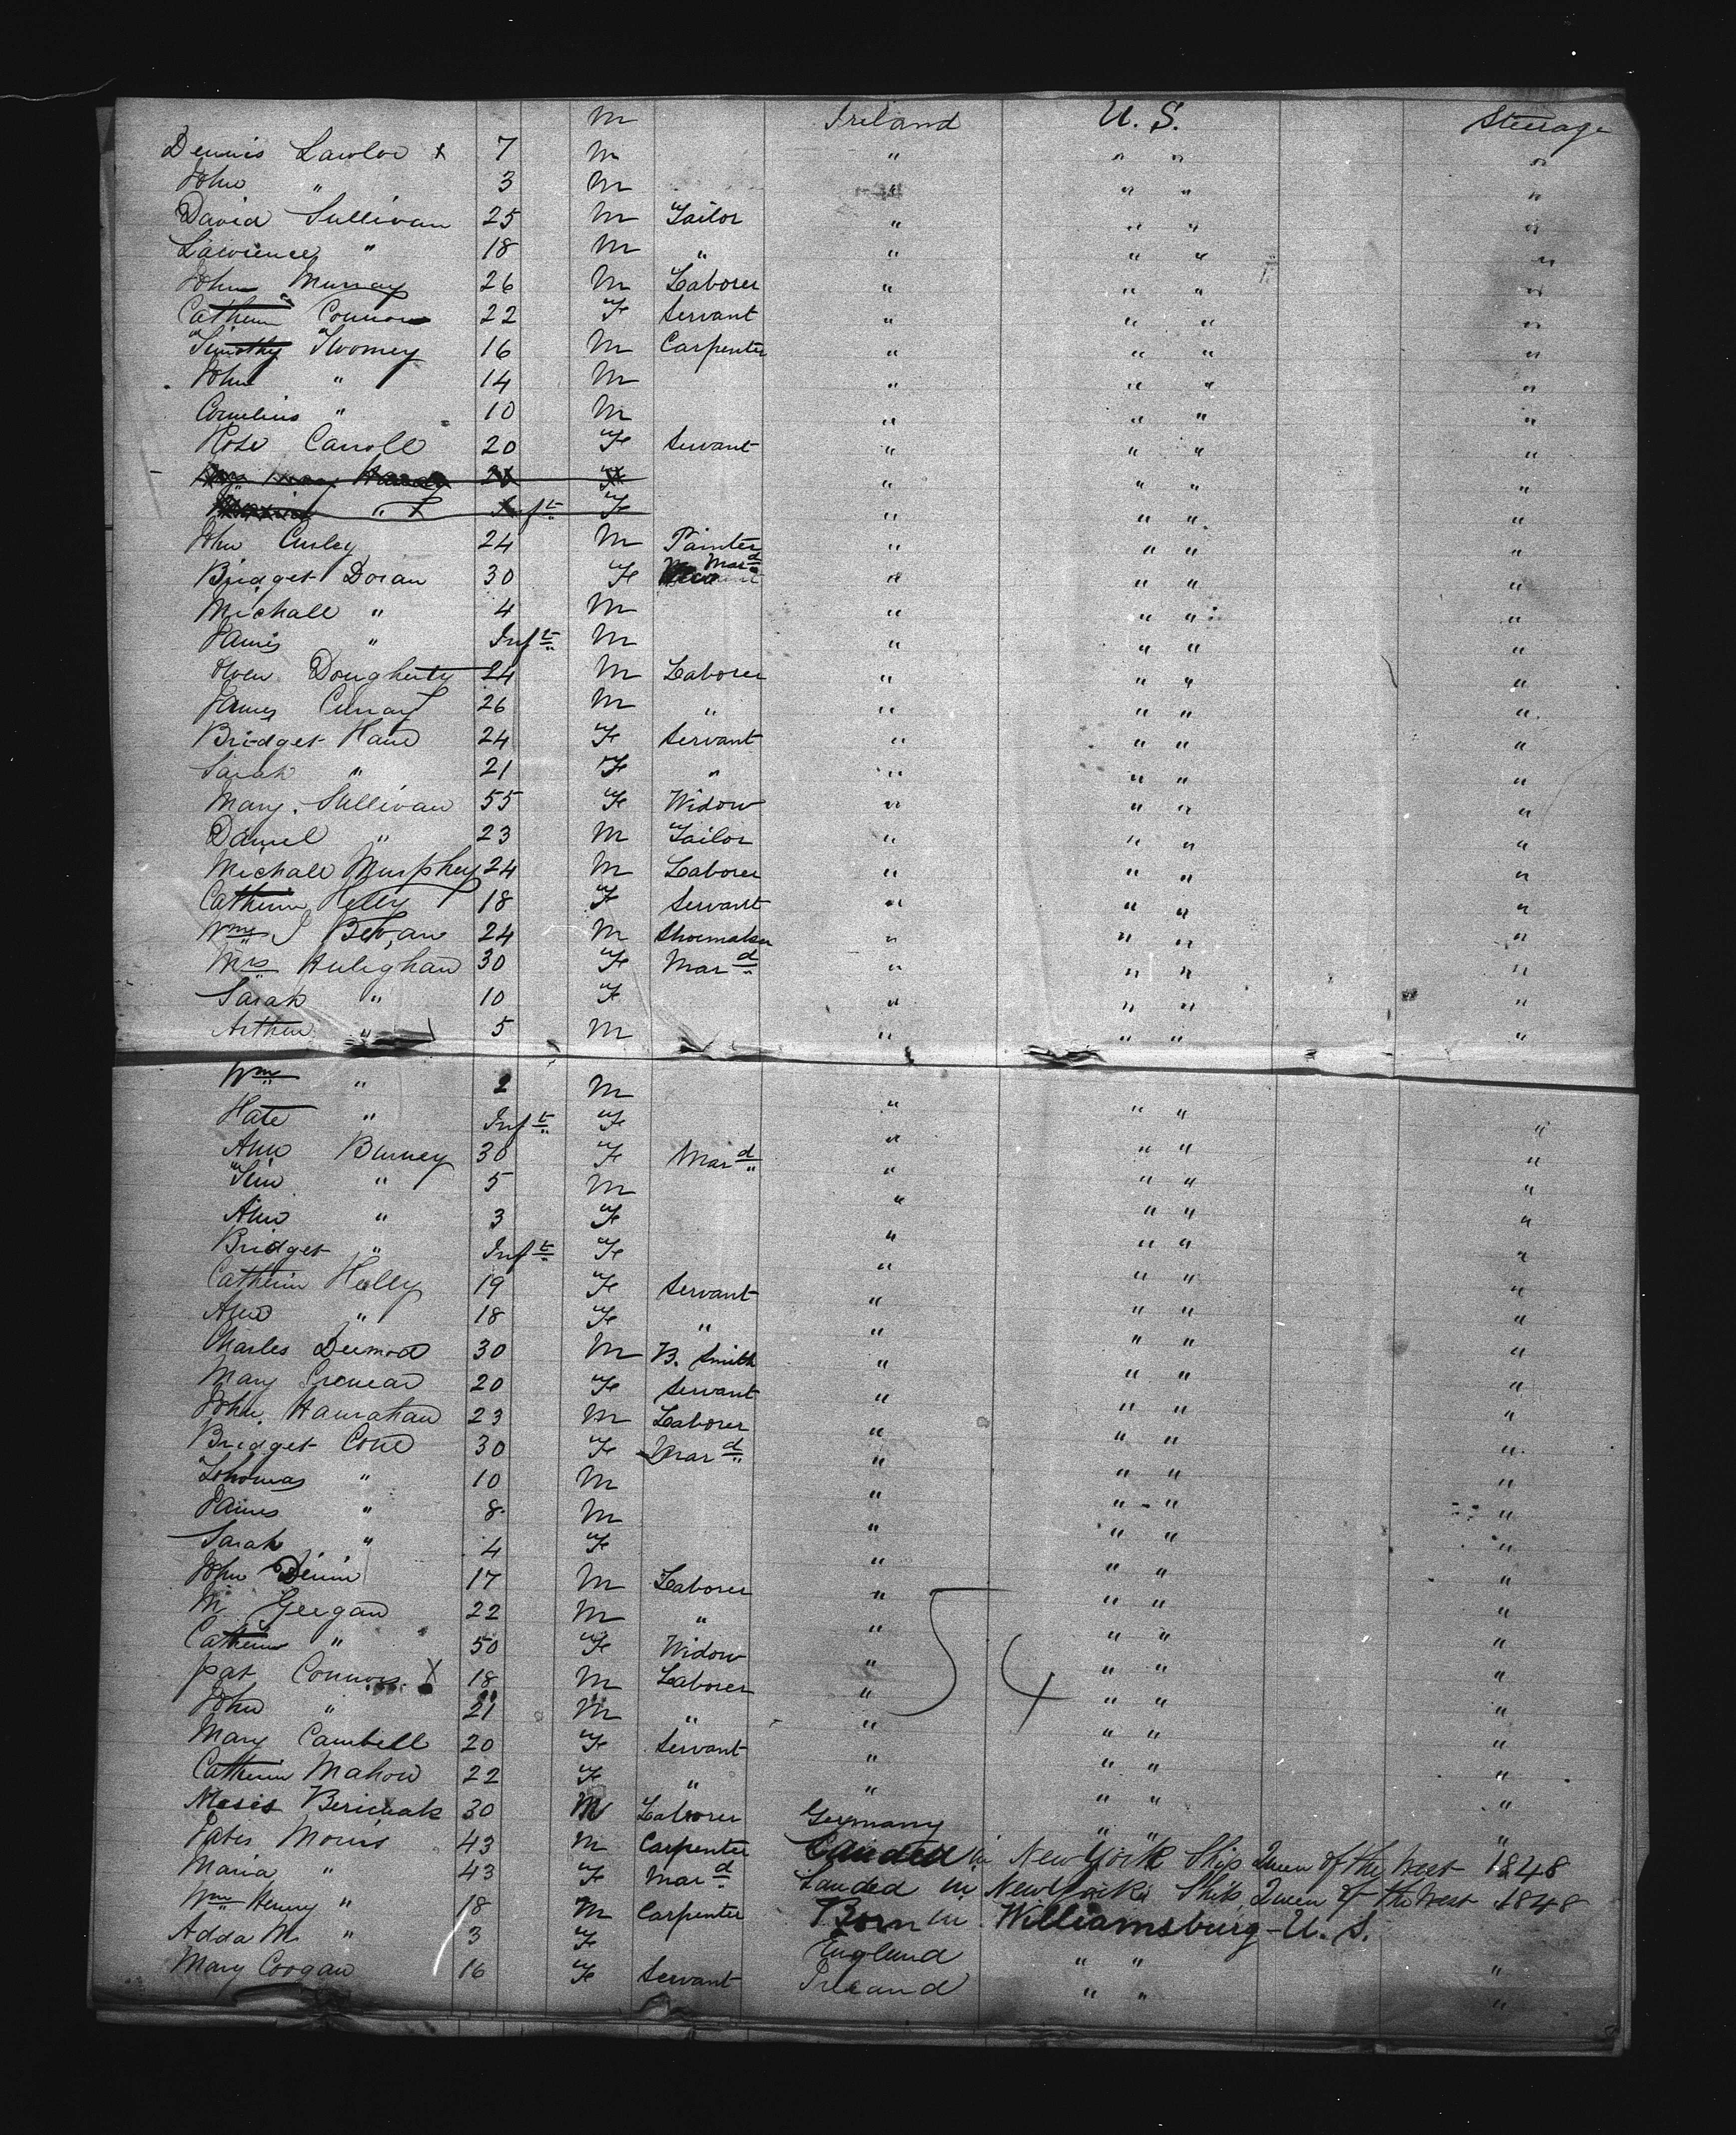 M Ireland U. S. Steerage
Dennis Lawlor x 7 M " " " "
John " 3 M " " " "
David Sullivan 25 M Tailor " " " "
Lawrence " 18 M " " " " "
John Murray 26 M Laborer " " " "
Catherin Connors 22 Fe Servant " " " "
Timothy Twomey 16 M Carpenter " " " "
John " 14 M " " " "
Cornelius " 10 M " " " "
Rose Carroll 20 Fe Servant " " " "
Fe " " " "
" Inft Fe " " " "
John Curley 24 M Painter " " " "
Bridget Doran 30 Fe Mard " " " "
Michall " 4 M " " " "
James " Inft M " " " "
Owen Dougherty 24 M Laborer " " " "
James Curray 26 M " " " " "
Bridget Hand 24 Fe Servant " " " "
Sarah " 21 Fe " " " " "
Mary Sullivan 55 Fe Widow " " " "
Daniel " 23 M Tailor " " " "
Michall Murphey 24 M Laborer " " " "
Catherin Kelly 18 F Servant " " " "
Wm J 24 M Shoemaker " " " "
Mrs Huleghan 30 Fe Mard " " " "
Sarah " 10 F " " " "
Arthur " 5 M " " " "
Wm " 2 M " " " "
Kate " Inft Fe " " " "
Ann Burney 30 F Mard " " " "
Tim " 5 M " " " "
Ann " 3 Fe " " " "
Bridget " Inft Fe " " " "
Catherin Kelly 19 Fe Servant " " " "
Ann " 18 Fe " " " " "
Charles Dermod 30 M B. Smith " " " "
Mary 20 Fe Servant " " " "
John Hanrahan 23 M Laborer " " " "
Bridget Cone 30 Fe Mard " " " "
Thomas " 10 M " " " "
James " 8 M " " " "
Sarah " 4 F " " " "
John 17 M Laborer " " " "
M Geegan 22 M " " " " "
Catherin " 50 Fe Widow " " " "
pat Connors X 18 M Laborer " " " "
54
John " 21 M " " " " "
Mary Cambell 20 Fe Servant " " " "
Catherin Mahon 22 F " " " " "
Moses 30 M Laborer Germany " " "
Morris 43 M Carpenter Landed in New York Ship Queen of the West 1848
Maria " 43 F Mard Landed in New York Ship Queen of the West 1848
Wm Henry " 18 M Carpenter Born in Williamsburg U. S.
Adda M " 3 F England " " "
Mary Coogan 16 Fe Servant Ireland " " "